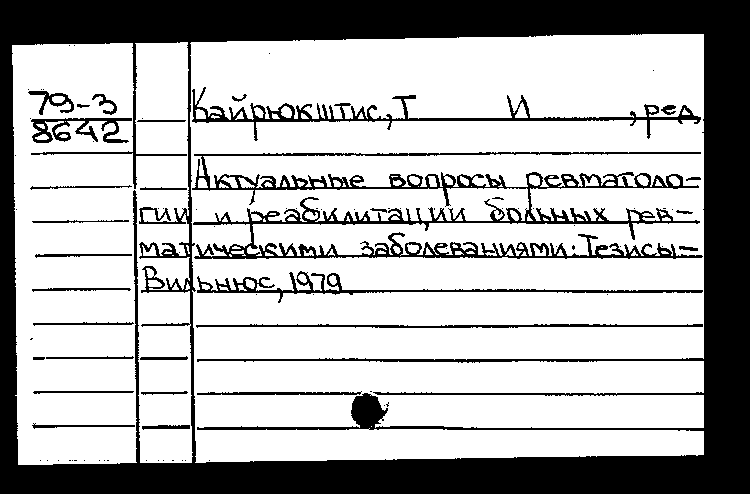 79-3
8642
Кайрюкштис, Т И , ред,
Актуальные вопросы ревматоло-
гии и реабилитации больных рев-
матическими заболеваниями: Тезисы-
Вильнюс, 1979